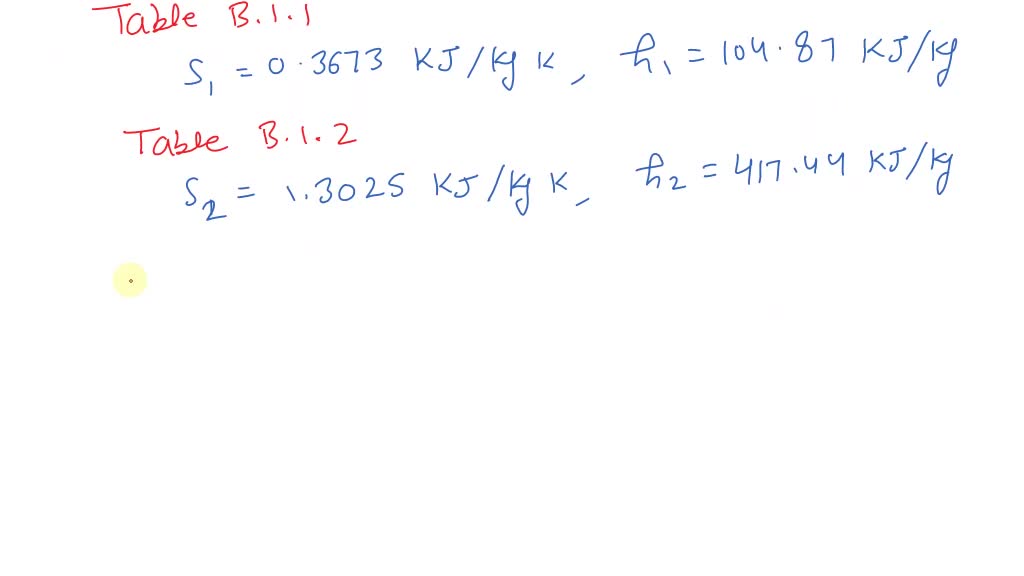 Table B.1.1
S₁ = 0.3673 KJ/Kg K, h₁ = 104.87 KJ/Kg
Table B.1.2
S₂ = 1.3025 KJ/Kg K, h₂ = 417.44 KJ/Kg